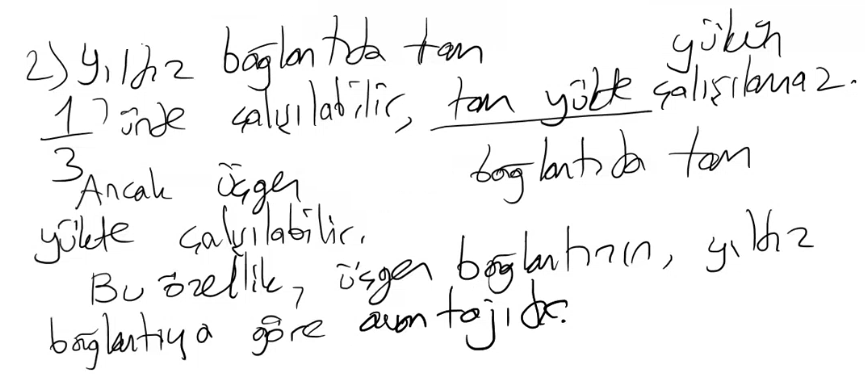 2) Yıldız bağlantıda tam yükün
1/3'ünde çalışılabilir, tam yükte çalışılamaz.
Ancak üçgen bağlantıda tam
yükte çalışılabilir.
Bu özellik, üçgen bağlantının, yıldız
bağlantıya göre avantajıdır.